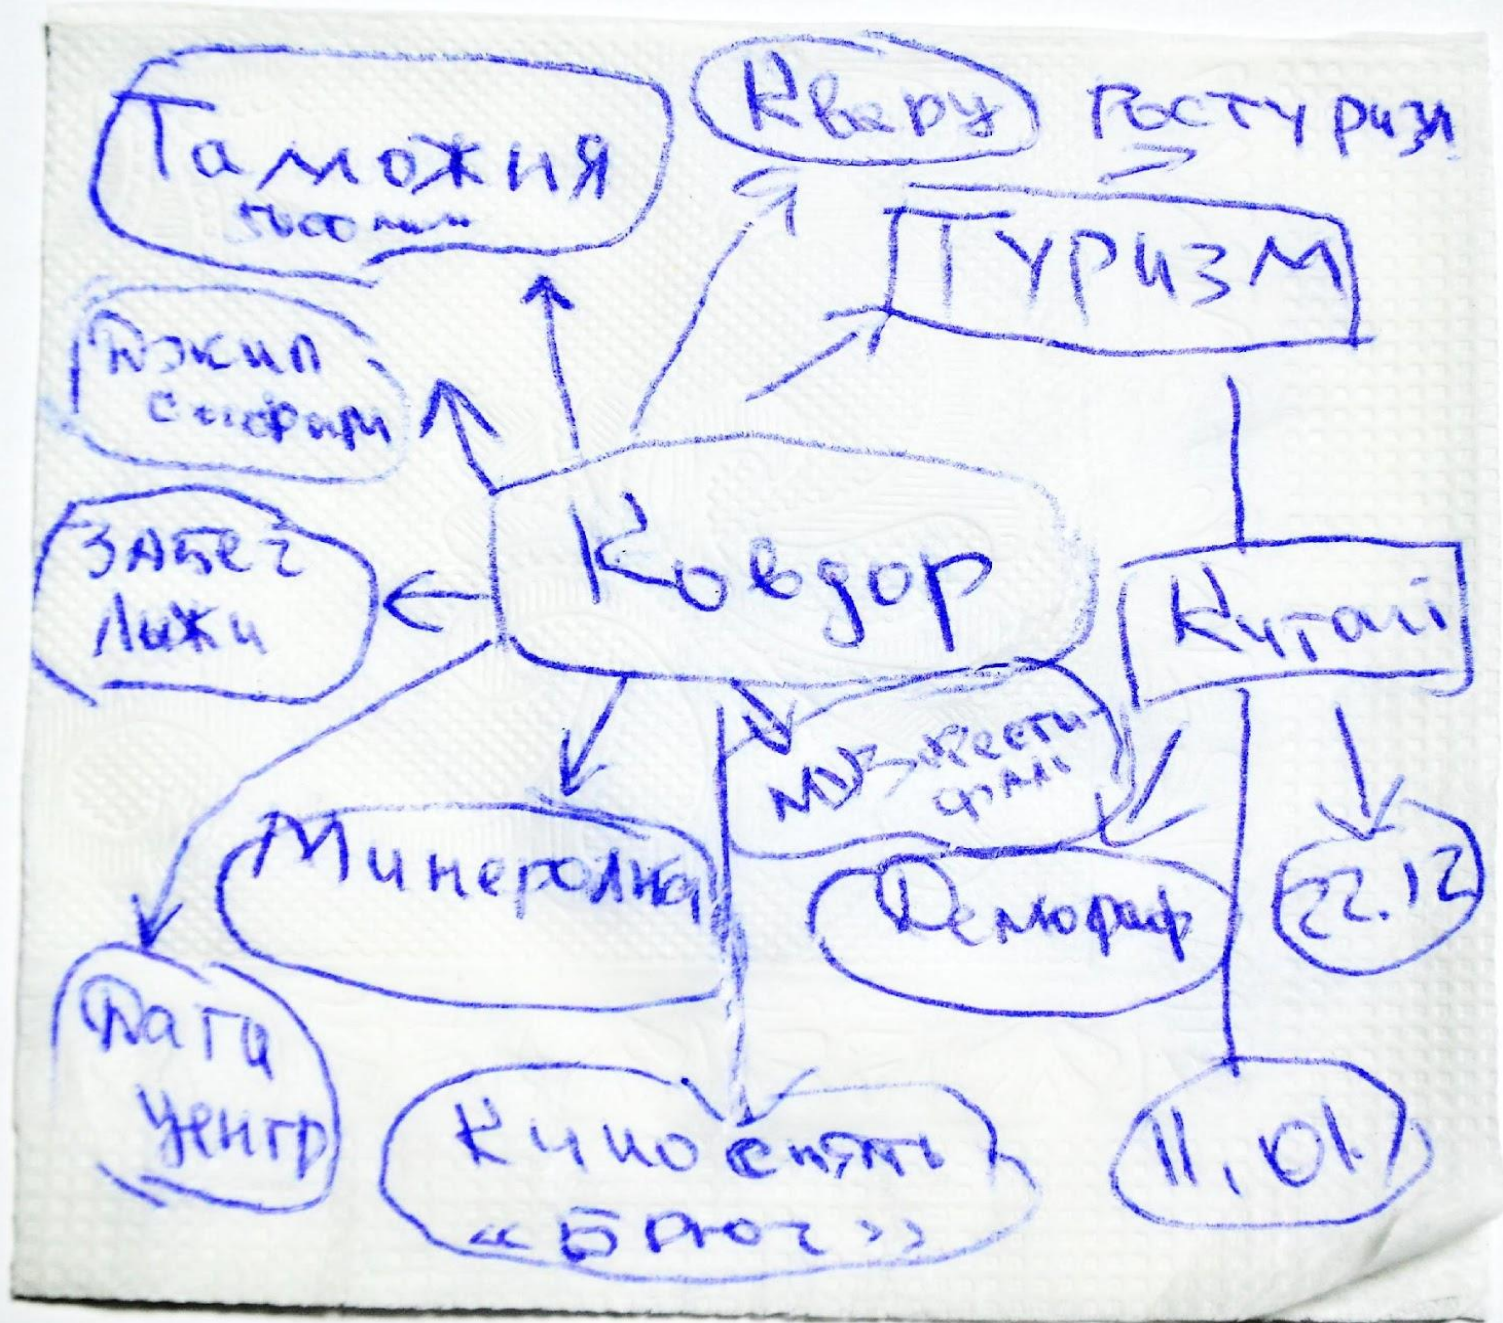 Таможня
5000 млн
Квару
Ростуризм
Туризм
Джип
сафари
Забег
Лыжи
Ковдор
Китай
Муз фести-
валь
Минералка
Демограф
22.12
Дата
центр
Кино снять
«Брют»
11.01